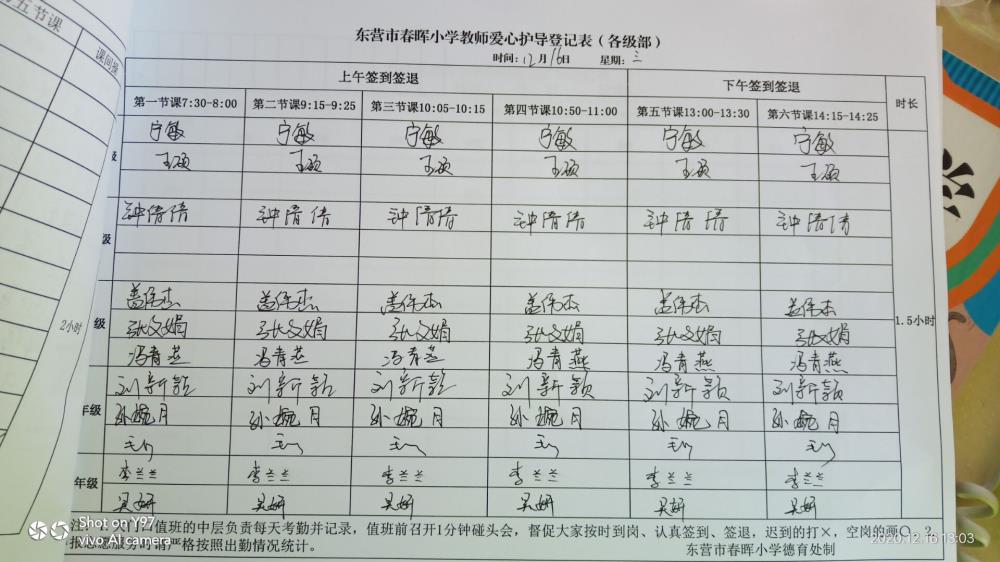 五节课
课间操
2小时
东营市春晖小学教师爱心护导登记表（各级部）
时间：12月16日 星期：三
上午签到签退 下午签到签退 时长
第一节课7:30-8:00 第二节课9:15-9:25 第三节课10:05-10:15 第四节课10:50-11:00 第五节课13:00-13:30 第六节课14:15-14:25
宁敏 宁敏 宁敏 宁敏 宁敏 宁敏
级 王硕 王硕 王硕 王硕 王硕 王硕
级 钟倩倩 钟倩倩 钟倩倩 钟倩倩 钟倩倩 钟倩倩
盖伟杰 盖伟杰 盖伟杰 盖伟杰 盖伟杰 盖伟杰
级 张文娟 张文娟 张文娟 张文娟 张文娟 张文娟 1.5小时
冯青燕 冯青燕 冯青燕 冯青燕 冯青燕 冯青燕
刘新颖 刘新颖 刘新颖 刘新颖 刘新颖 刘新颖
年级 孙婉月 孙婉月 孙婉月 孙婉月 孙婉月 孙婉月
李兰兰 李兰兰 李兰兰 李兰兰 李兰兰 李兰兰
年级 吴妍 吴妍 吴妍 吴妍 吴妍 吴妍
值班的中层负责每天考勤并记录，值班前召开1分钟碰头会，督促大家按时到岗、认真签到、签退，迟到的打×，空岗的画○。2.
严格按照出勤情况统计。 东营市春晖小学德育处制
Shot on Y97
vivo AI camera
2020.12.16 13:03